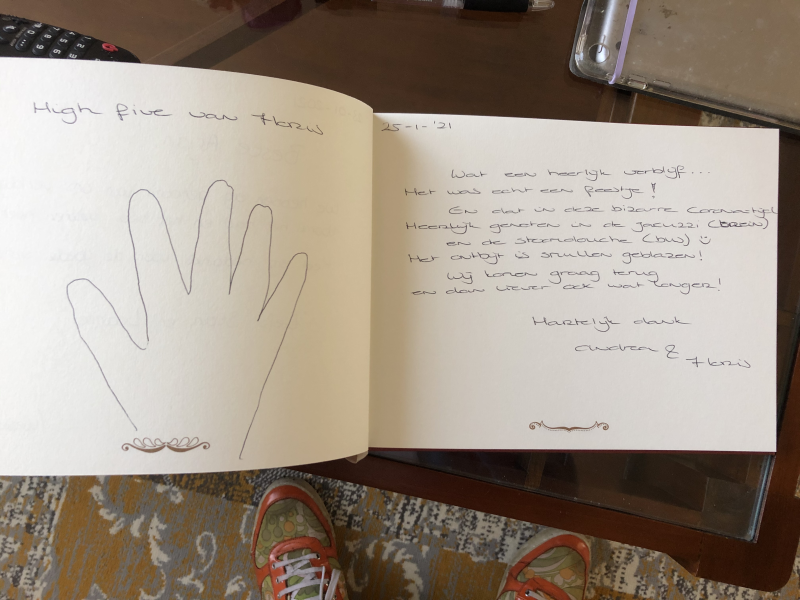 High five van Floris
25-1-'21
Wat een heerlijk verblijf...
Het was echt een feestje!
En dat in deze bizarre Coronatijd
Heerlijk genoten in de jacuzzi (
en de stoomdouche (
Het ontbijt is smullen geblazen!
Wij komen graag terug
en dan liever ook wat langer!
Hartelijk dank
Andrea &
Floris